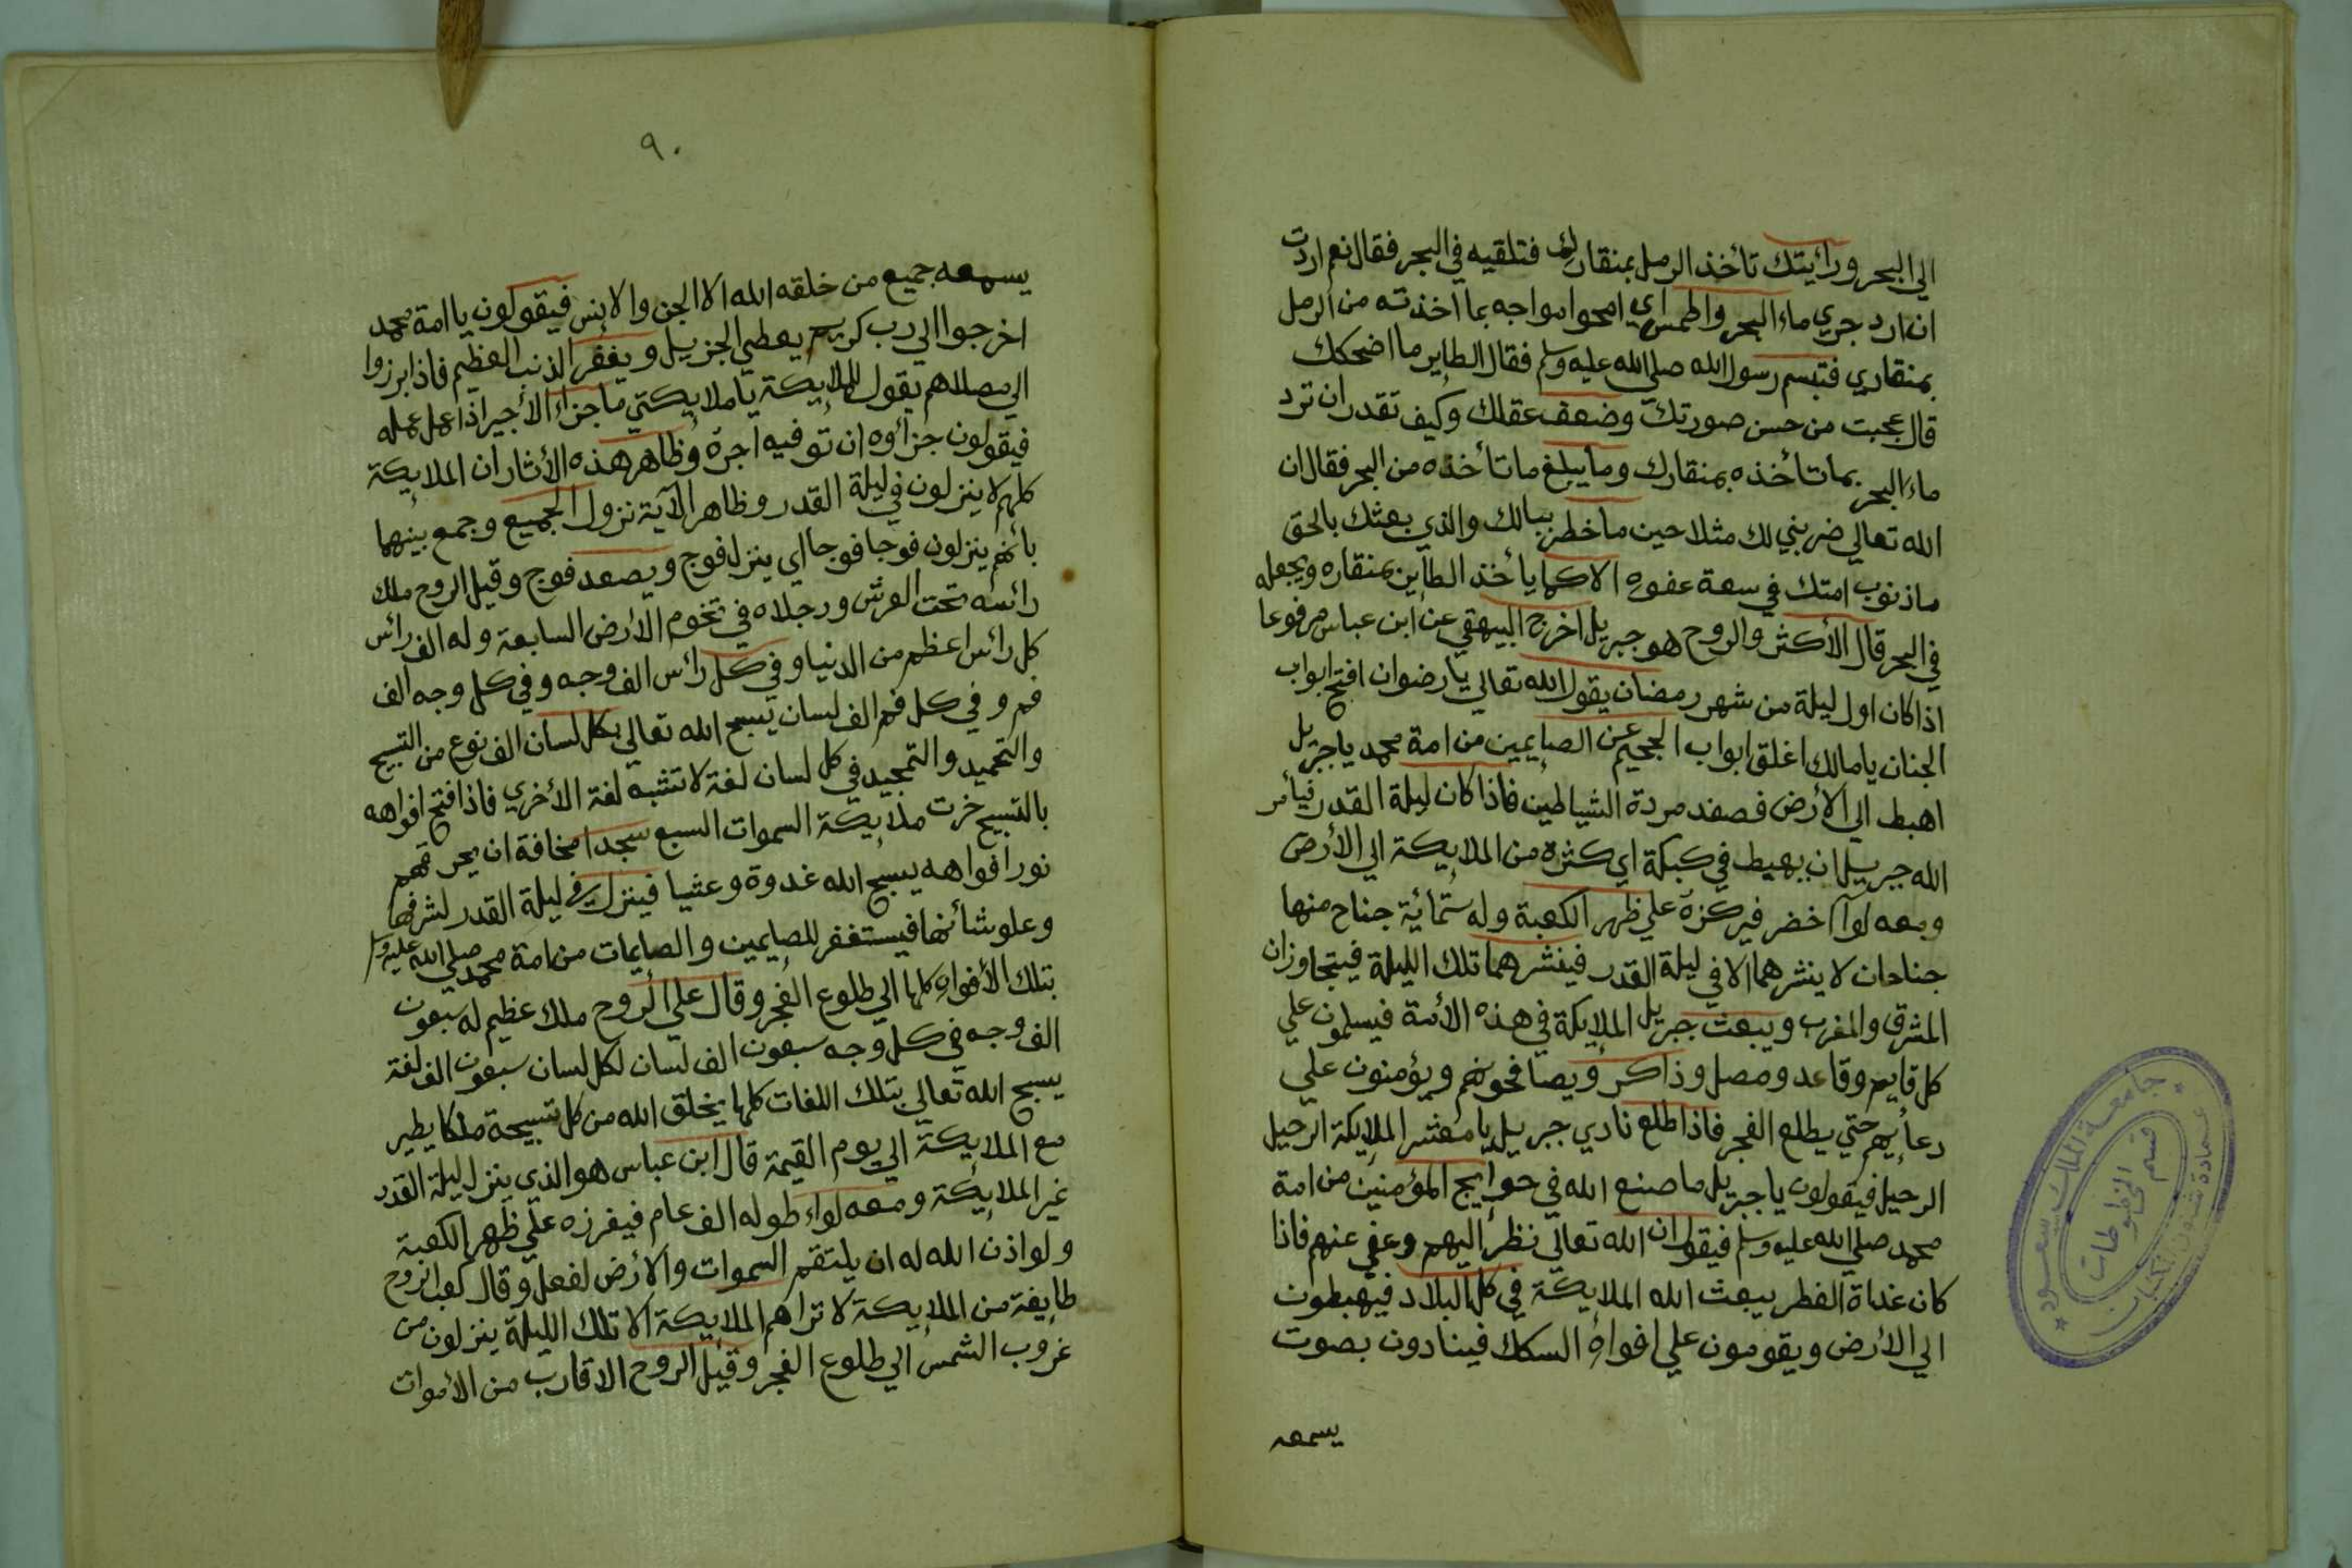 الي البحر ورأيتك تأخذ الرمل بمنقارك فتلقيه في البحر فقال نعم اردت
ان ارد جري ماء البحر واطمس اي امحوا مواجه بما اخذته من الرمل
بمنقاري فتبسم رسول الله صلي الله عليه وسلم فقال الطاير ما اضحكك
قال عجبت من حسن صورتك وضعف عقلك وكيف تقدر ان ترد
ماء البحر بما تأخذه بمنقارك وما يبلغ ما تأخذه من البحر فقال ان
الله تعالي ضربني لك مثلا حين ما خطر ببالك والذي بعثك بالحق
ما ذنوب امتك في سعة عفوه الا كما يأخذ الطاير بمنقاره ويجعله
في البحر قال الأكثر والروح هو جبريل اخرج البيهقي عن ابن عباس مرفوعا
اذا كان اول ليلة من شهر رمضان يقول الله تعالي يا رضوان افتح ابواب
الجنان يا مالك اغلق ابواب الجحيم عن الصايمين من امة محمد يا جبريل
اهبط الي الأرض فصفد مردة الشياطين فاذا كان ليلة القدر فيأمر
الله جبريل ان يهبط في كبكة اي كثرة من الملايكة الي الأرض
ومعه لوآ اخضر فيركزه علي ظهر الكعبة وله ستمائة جناح منها
جناحان لا ينشرهما الا في ليلة القدر فينشرهما تلك الليلة فيتجاوزان
المشرق والمغرب ويبعث جبريل الملايكة في هذه الأمة فيسلمون علي
كل قايم وقاعد ومصل وذاكر ويصافحونهم ويؤمنون علي
دعائهم حتي يطلع الفجر فاذا طلع نادي جبريل يا معشر الملايكة الرحيل
الرحيل فيقولون يا جبريل ما صنع الله في حوايج المؤمنين من امة
محمد صلي الله عليه وسلم فيقول ان الله تعالي نظر اليهم وعفي عنهم فاذا
كان غداة الفطر يبعث الله الملايكة في كل البلاد فيهبطون
الي الأرض ويقومون علي افواه السكك فينادون بصوت
يسمعه
جامعة الملك سعود
عمادة شئون المكتبات
قسم المخطوطات
٩٠
يسمعه جميع من خلقه الله الا الجن والانس فيقولون يا امة محمد
اخرجوا الي رب كريم يعطي الجزيل ويغفر الذنب العظيم فاذا برزوا
الي مصلاهم يقول للملايكة يا ملايكتي ما جزاء الأجير اذا عمل عمله
فيقولون جزاؤه ان توفيه اجره وظاهر هذه الأثار ان الملايكة
كلهم لا ينزلون في ليلة القدر وظاهر الآية نزول الجميع وجمع بينهما
بأنهم ينزلون فوجا فوجا اي ينزل فوج ويصعد فوج وقيل الروح ملك
رأسه تحت العرش ورجلاه في تخوم الأرض السابعة وله الف رأس
كل رأس اعظم من الدنيا وفي كل رأس الف وجه وفي كل وجه الف
فم وفي كل فم الف لسان يسبح الله تعالي بكل لسان الف نوع من التسبيح
والتحميد والتمجيد في كل لسان لغة لا تشبه لغة الأخري فاذا فتح افواهه
بالتسبيح خرت ملايكة السموات السبع سجدا مخافة ان يحرقهم
نور افواهه يسبح الله غدوة وعشيا فينزل في ليلة القدر لشرفها
وعلو شأنها فيستغفر للصايمين والصايمات من امة محمد صلي الله عليه وسلم
بتلك الأفواه كلها الي طلوع الفجر وقال علي الروح ملك عظيم له سبعون
الف وجه في كل وجه سبعون الف لسان لكل لسان سبعون الف لغة
يسبح الله تعالي بتلك اللغات كلها يخلق الله من كل تسبيحة ملكا يطير
مع الملايكة الي يوم القيمة قال ابن عباس هو الذي ينزل ليلة القدر
غير الملايكة ومعه لواء طوله الف عام فيغرزه علي ظهر الكعبة
ولو اذن الله له ان يلتقم السموات والأرض لفعل وقال كعب الروح
طايفة من الملايكة لا تراهم الملايكة الا تلك الليلة ينزلون من
غروب الشمس الي طلوع الفجر وقيل الروح الاقارب من الأموات